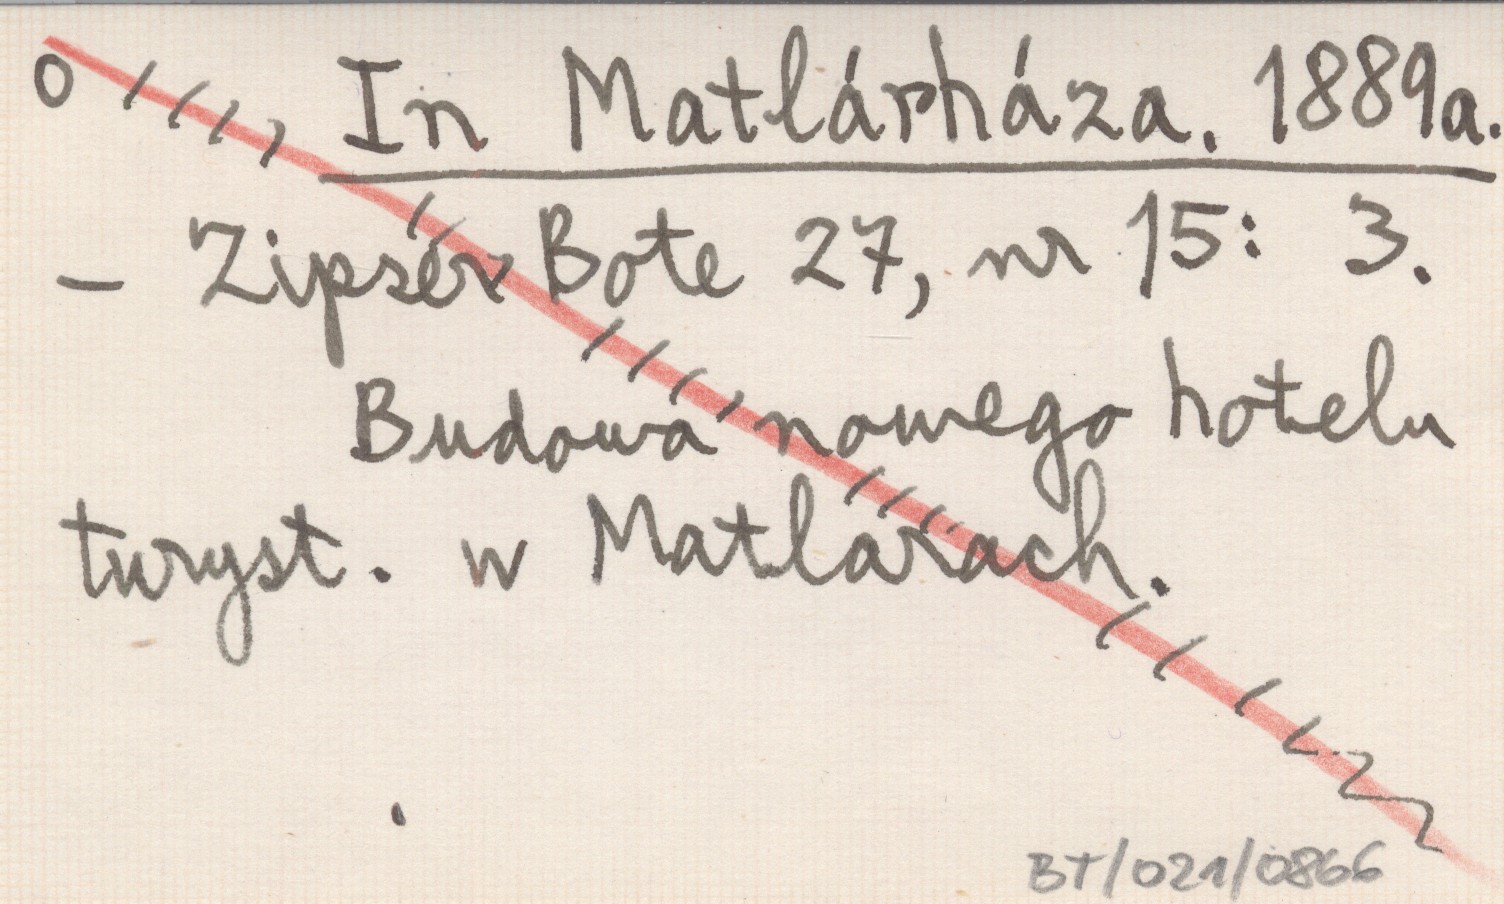 O In Matlárháza. 1889a.
– Zipser Bote 27, nr 15: 3.
Budowa nowego hotelu
turyst. w Matlárach.
BT/021/0866